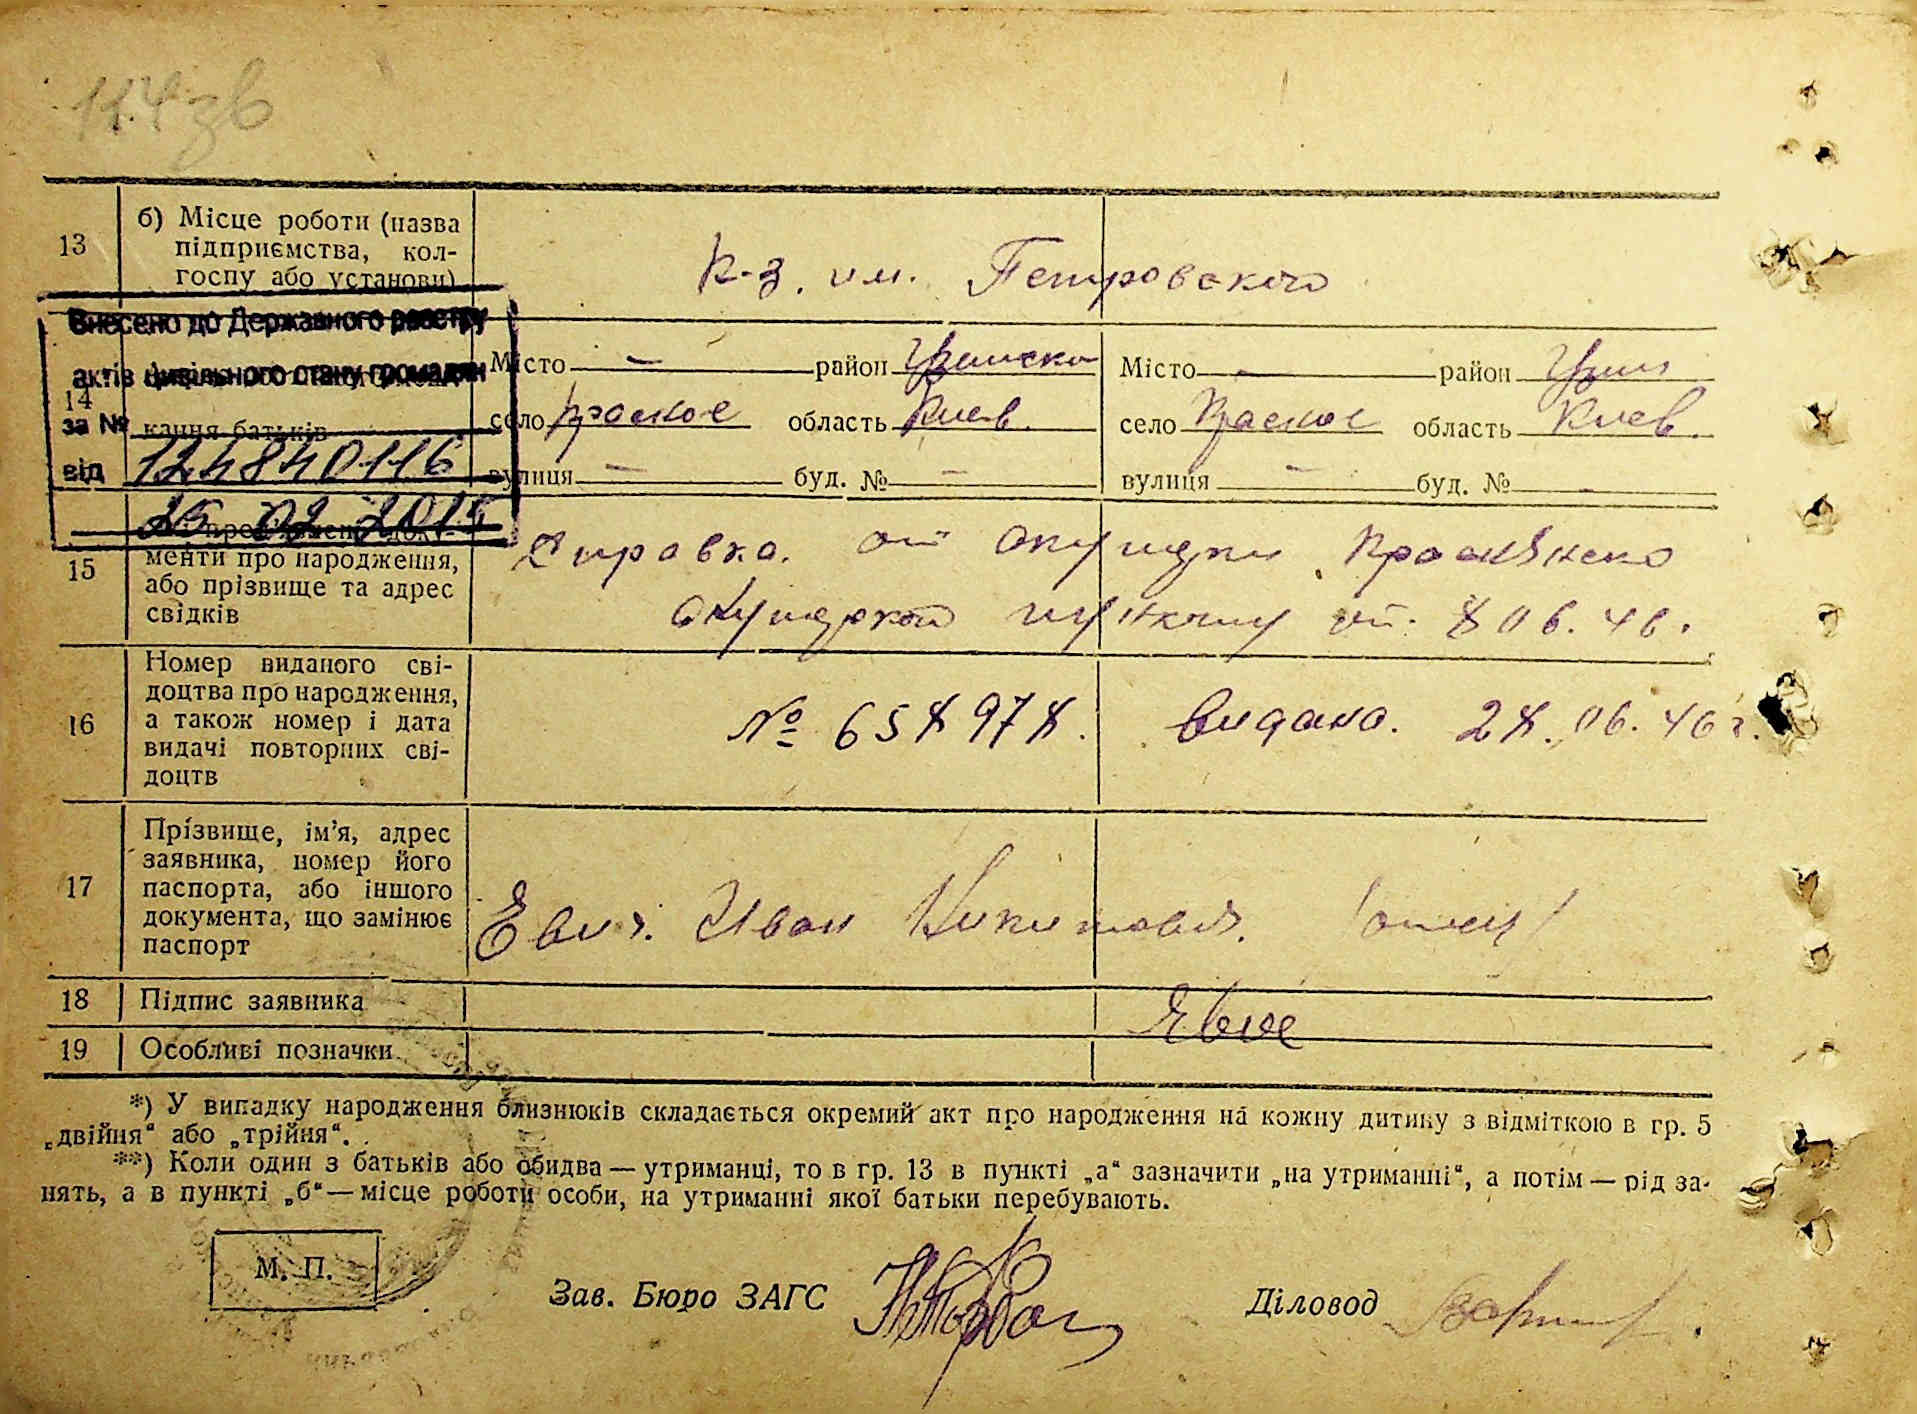 114 зв
13
б) Місце роботи (назва
підприємства, кол-
госпу або установи)
К-з. им. Петровского
Внесено до Державного реєстру
актів цивільного стану громадян
за №
від 124840116
25 02 2015
14
кання батьків
Місто — район
село Красное область Киев.
вулиця — буд. № —
Місто — район
село Красное область Киев.
вулиця — буд. № —
15
менти про народження,
або прізвище та адрес
свідків
Справка. от
06. 46.
16
Номер виданого сві-
доцтва про народження,
а також номер і дата
видачі повторних сві-
доцтв
№ 658978. Видано. 28. 06. 46 г.
17
Прізвище, ім’я, адрес
заявника, номер його
паспорта, або іншого
документа, що замінює
паспорт
Иван Никитович. /отец/
18
Підпис заявника
19
Особливі позначки
*) У випадку народження близнюків складається окремий акт про народження на кожну дитину з відміткою в гр. 5
„двійня“ або „трійня“.
**) Коли один з батьків або обидва — утриманці, то в гр. 13 в пункті „а“ зазначити „на утриманні“, а потім — рід за-
нять, а в пункті „б“ — місце роботи особи, на утриманні якої батьки перебувають.
М. П.
Зав. Бюро ЗАГС
Діловод